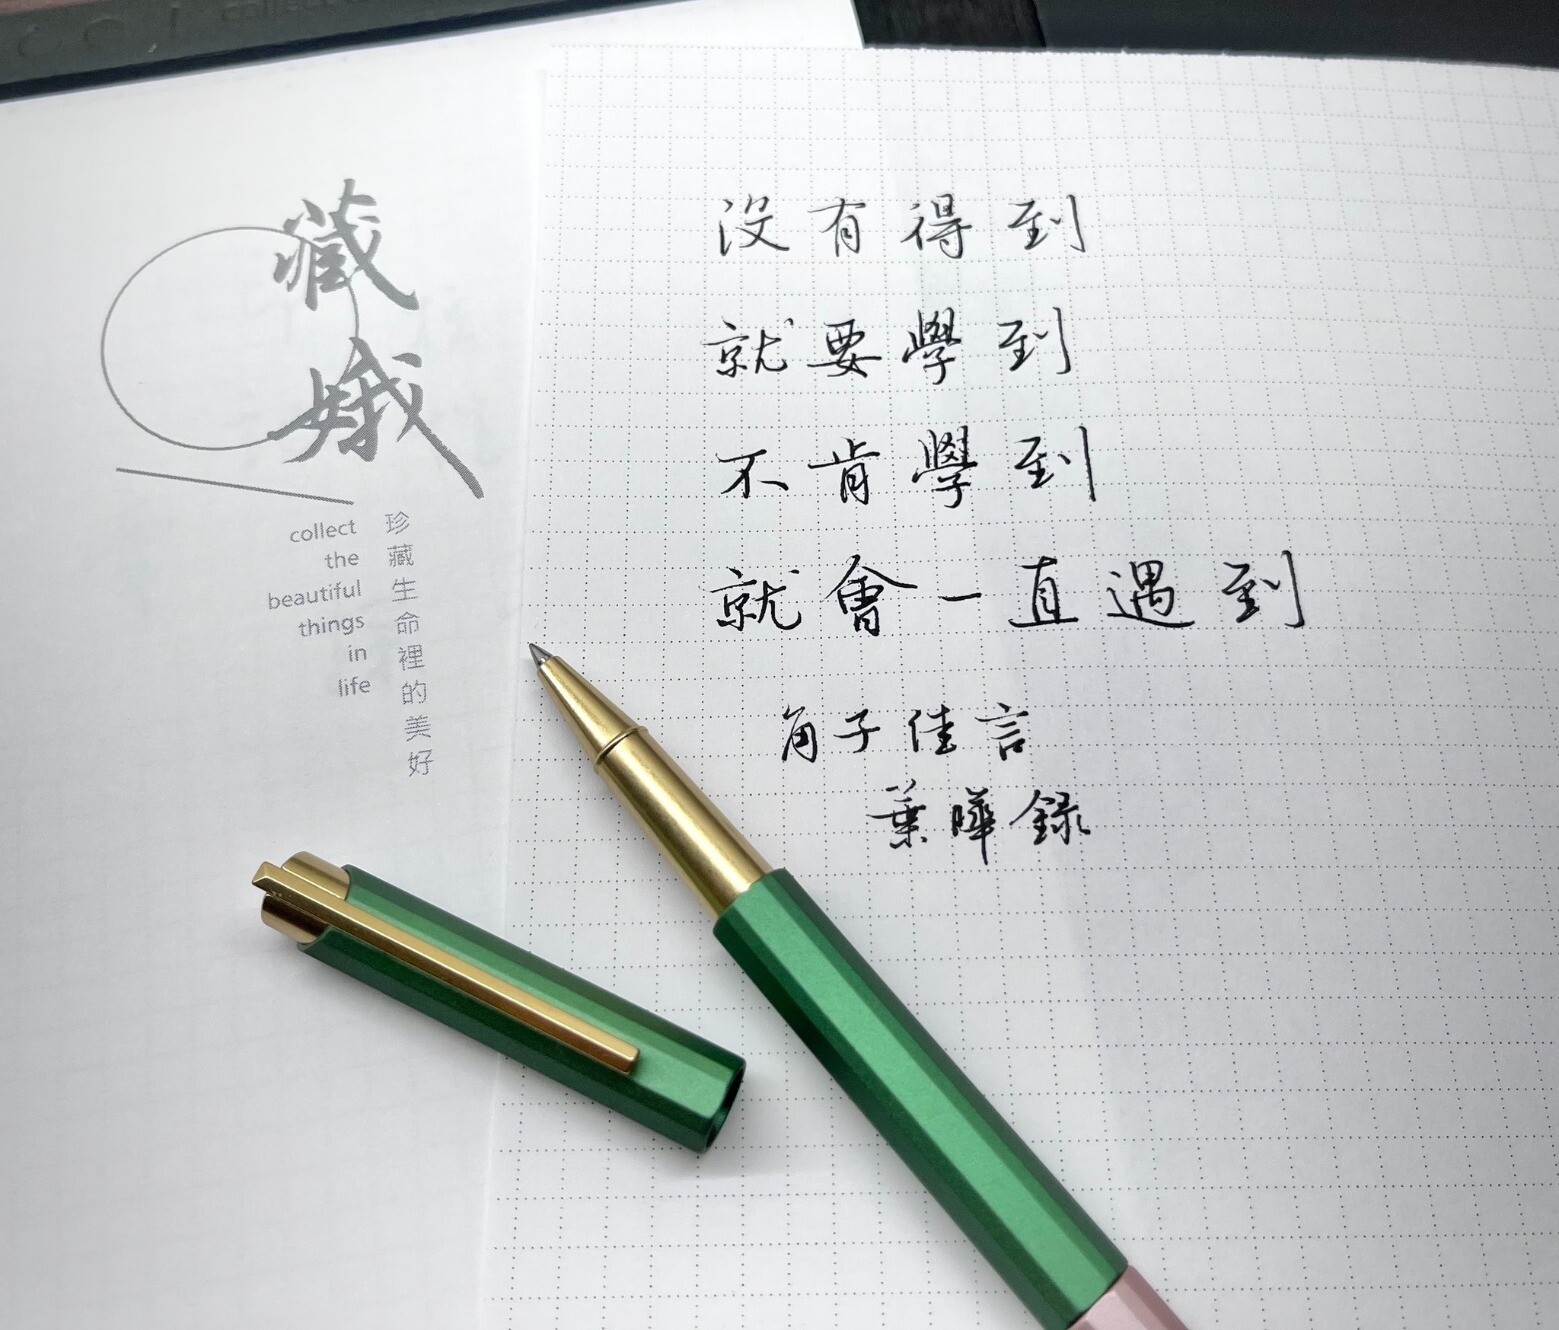 藏
娥
collect
the
beautiful
things
in
life
珍藏生命裡的美好
沒有得到
就要學到
不肯學到
就會一直遇到
角子佳言
葉曄錄